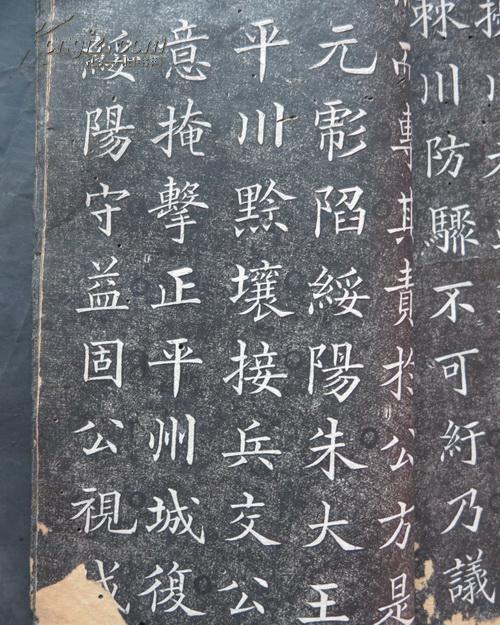 棘川防驟不可紆乃議
專其責於公方是
元彫陷綏陽朱大王
平川黔壤接兵交公
意掩擊正平州城復
綏陽守益固公視